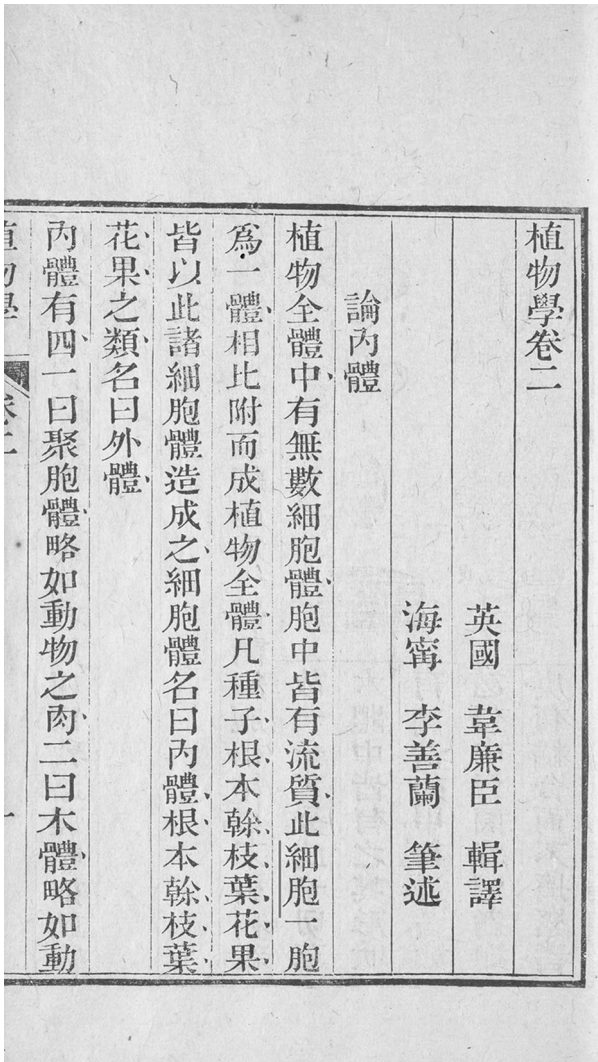 植物學卷二
英國 韋廉臣 輯譯
海甯 李善蘭 筆述
論內體
植物全體中有無數細胞體胞中皆有流質此細胞一胞
爲一體相比附而成植物全體凡種子根本榦枝葉花果
皆以此諸細胞體造成之細胞體名曰內體根本榦枝葉
花果之類名曰外體
內體有四一曰聚胞體略如動物之肉二曰木體略如動
植物學 卷二 一